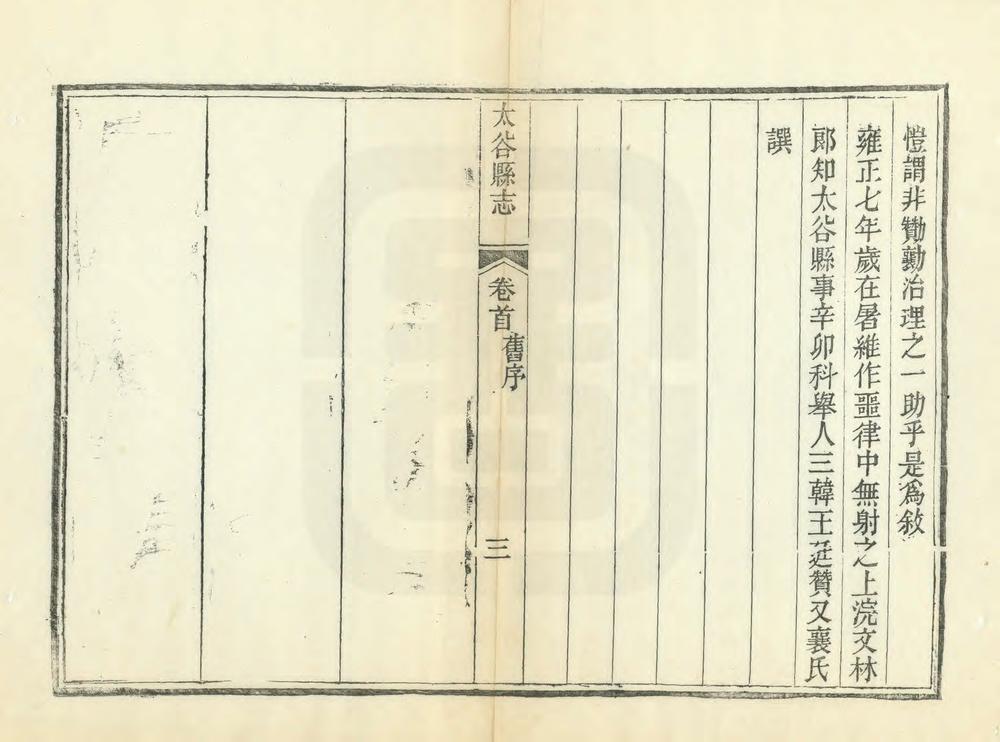 愷謂非贊勷治理之一助乎是爲敘
雍正七年歲在屠維作噩律中無射之上浣文林
郎知太谷縣事辛卯科舉人三韓王廷贊又襄氏
譔
太谷縣志
卷首
舊序
三